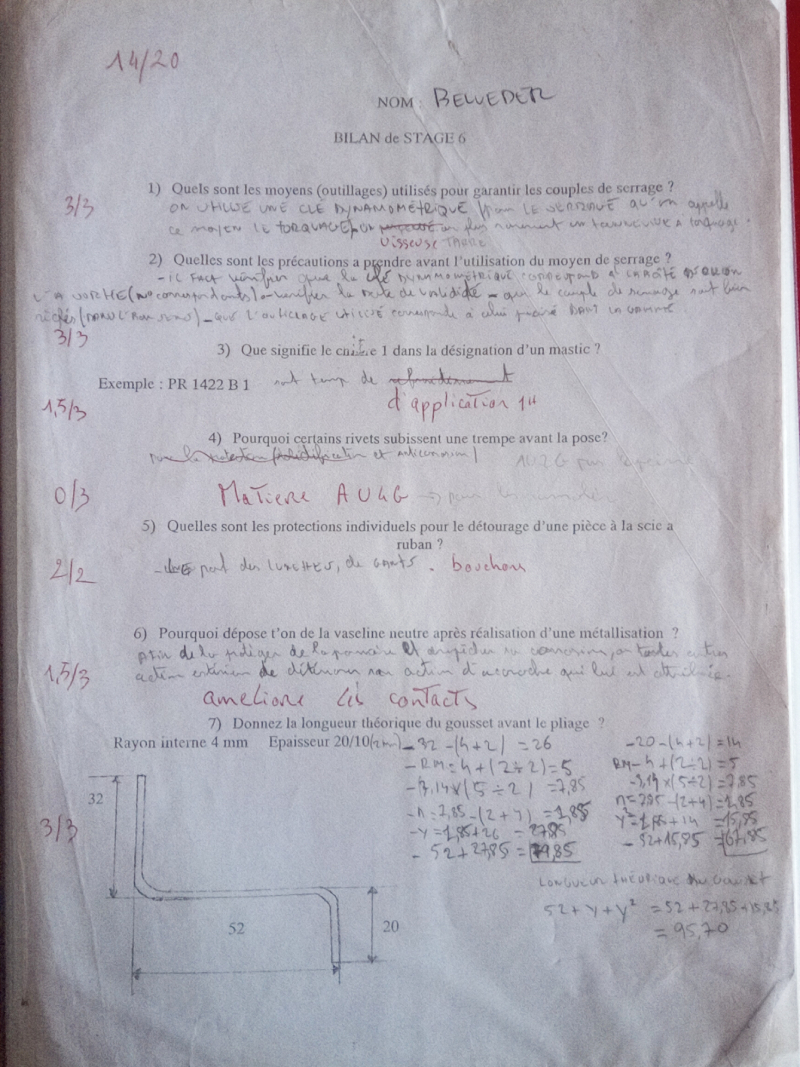 14/20
NOM : BELVEDER
BILAN de STAGE 6
1) Quels sont les moyens (outillages) utilisés pour garantir les couples de serrage ?
3/3
ON UTILISE UNE CLE DYNAMOMÉTRIQUE pour LE SERRAGE QU'on appelle
ce moyen LE TORQUAGE, on plus rarement un tournevis à torquage.
Visseuse TARÉE
2) Quelles sont les précautions a prendre avant l'utilisation du moyen de serrage ?
- IL FAUT vérifier que la clé DYNAMOMÉTRIQUE CORRESPOND à LA BOÎTE
(N° correspondants) - vérifier la date de validité - que le couple de serrage soit bien
- QUE L'OUTILLAGE UTILISÉ corresponde à celui DANS LA GAMME.
3/3
3) Que signifie le chiffre 1 dans la désignation d'un mastic ?
Exemple : PR 1422 B 1 son temps de refroidissement
1,5/3
d'application 1H
4) Pourquoi certains rivets subissent une trempe avant la pose?
AU2G
0/3
Matiere AU4G
5) Quelles sont les protections individuels pour le détourage d'une pièce à la scie a
ruban ?
2/2
- LE port des LUNETTES, de GANTS. bouchons
6) Pourquoi dépose t'on de la vaseline neutre après réalisation d'une métallisation ?
afin de la protéger de la corrosion, ou toutes autres
action de détériorer son action d'accroche qui lui est attribuée.
1,5/3
améliore les contacts
7) Donnez la longueur théorique du gousset avant le pliage ?
Rayon interne 4 mm Epaisseur 20/10 (2mm)
- 32 - (4+2) = 26
- RM = 4 + (2÷2) = 5
- 3,14 x (5÷2) = 7,85
- n = 7,85 - (2+4) = 1,85
- Y = 1,85 + 26 = 27,85
- 52 + 27,85 = 79,85
- 20 - (4+2) = 14
RM - 4 + (2÷2) = 5
- 3,14 x (5÷2) = 7,85
n = 7,85 - (2+4) = 1,85
Y² = 1,85 + 14 = 15,85
- 52 + 15,85 = 67,85
LONGUEUR THÉORIQUE du GOUSSET
52 + Y + Y² = 52 + 27,85 + 15,85
= 95,70
3/3
32
52
20